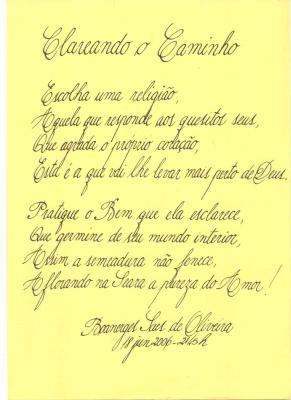 Clareando o Caminho
Escolha uma religião,
Aquela que responde aos quesitos seus,
Que agrada o próprio coração,
Esta é a que vai lhe levar mais perto de Deus.
Pratique o Bem que ela esclarece,
Que germine de seu mundo interior,
Assim a semeadura não fenece,
Aflorando na Seara a pureza do Amor!
Boanerges Saes de Oliveira
18 jun 2006 - 21:40 h